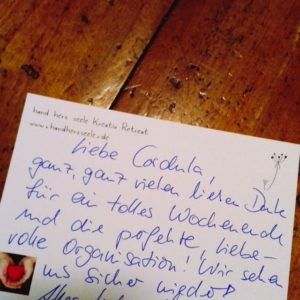 hand herz seele Kreativ Retreat
www.handherzseele.de
Liebe Cordula!
ganz, ganz vielen lieben Dank
für ein tolles Wochenende
und die perfekte, liebe-
volle Organisation! Wir sehen
uns sicher wieder!